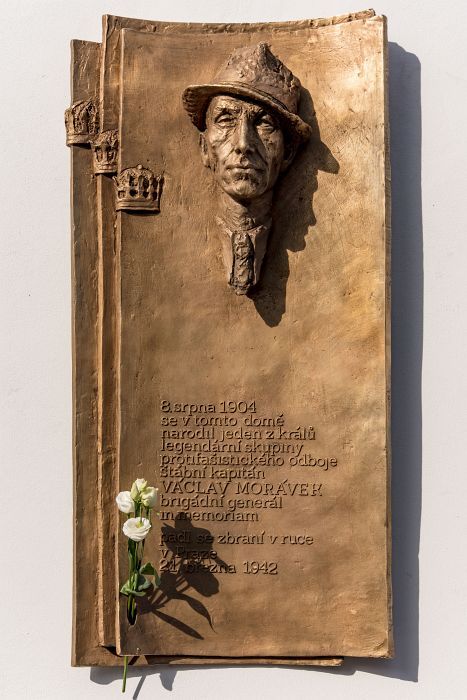 8. srpna 1904
se v tomto domě
narodil jeden z králů
legendární skupiny
protifašistického odboje
štábní kapitán
VÁCLAV MORÁVEK
brigádní generál
in memoriam
padl se zbraní v ruce
v Praze
21. března 1942